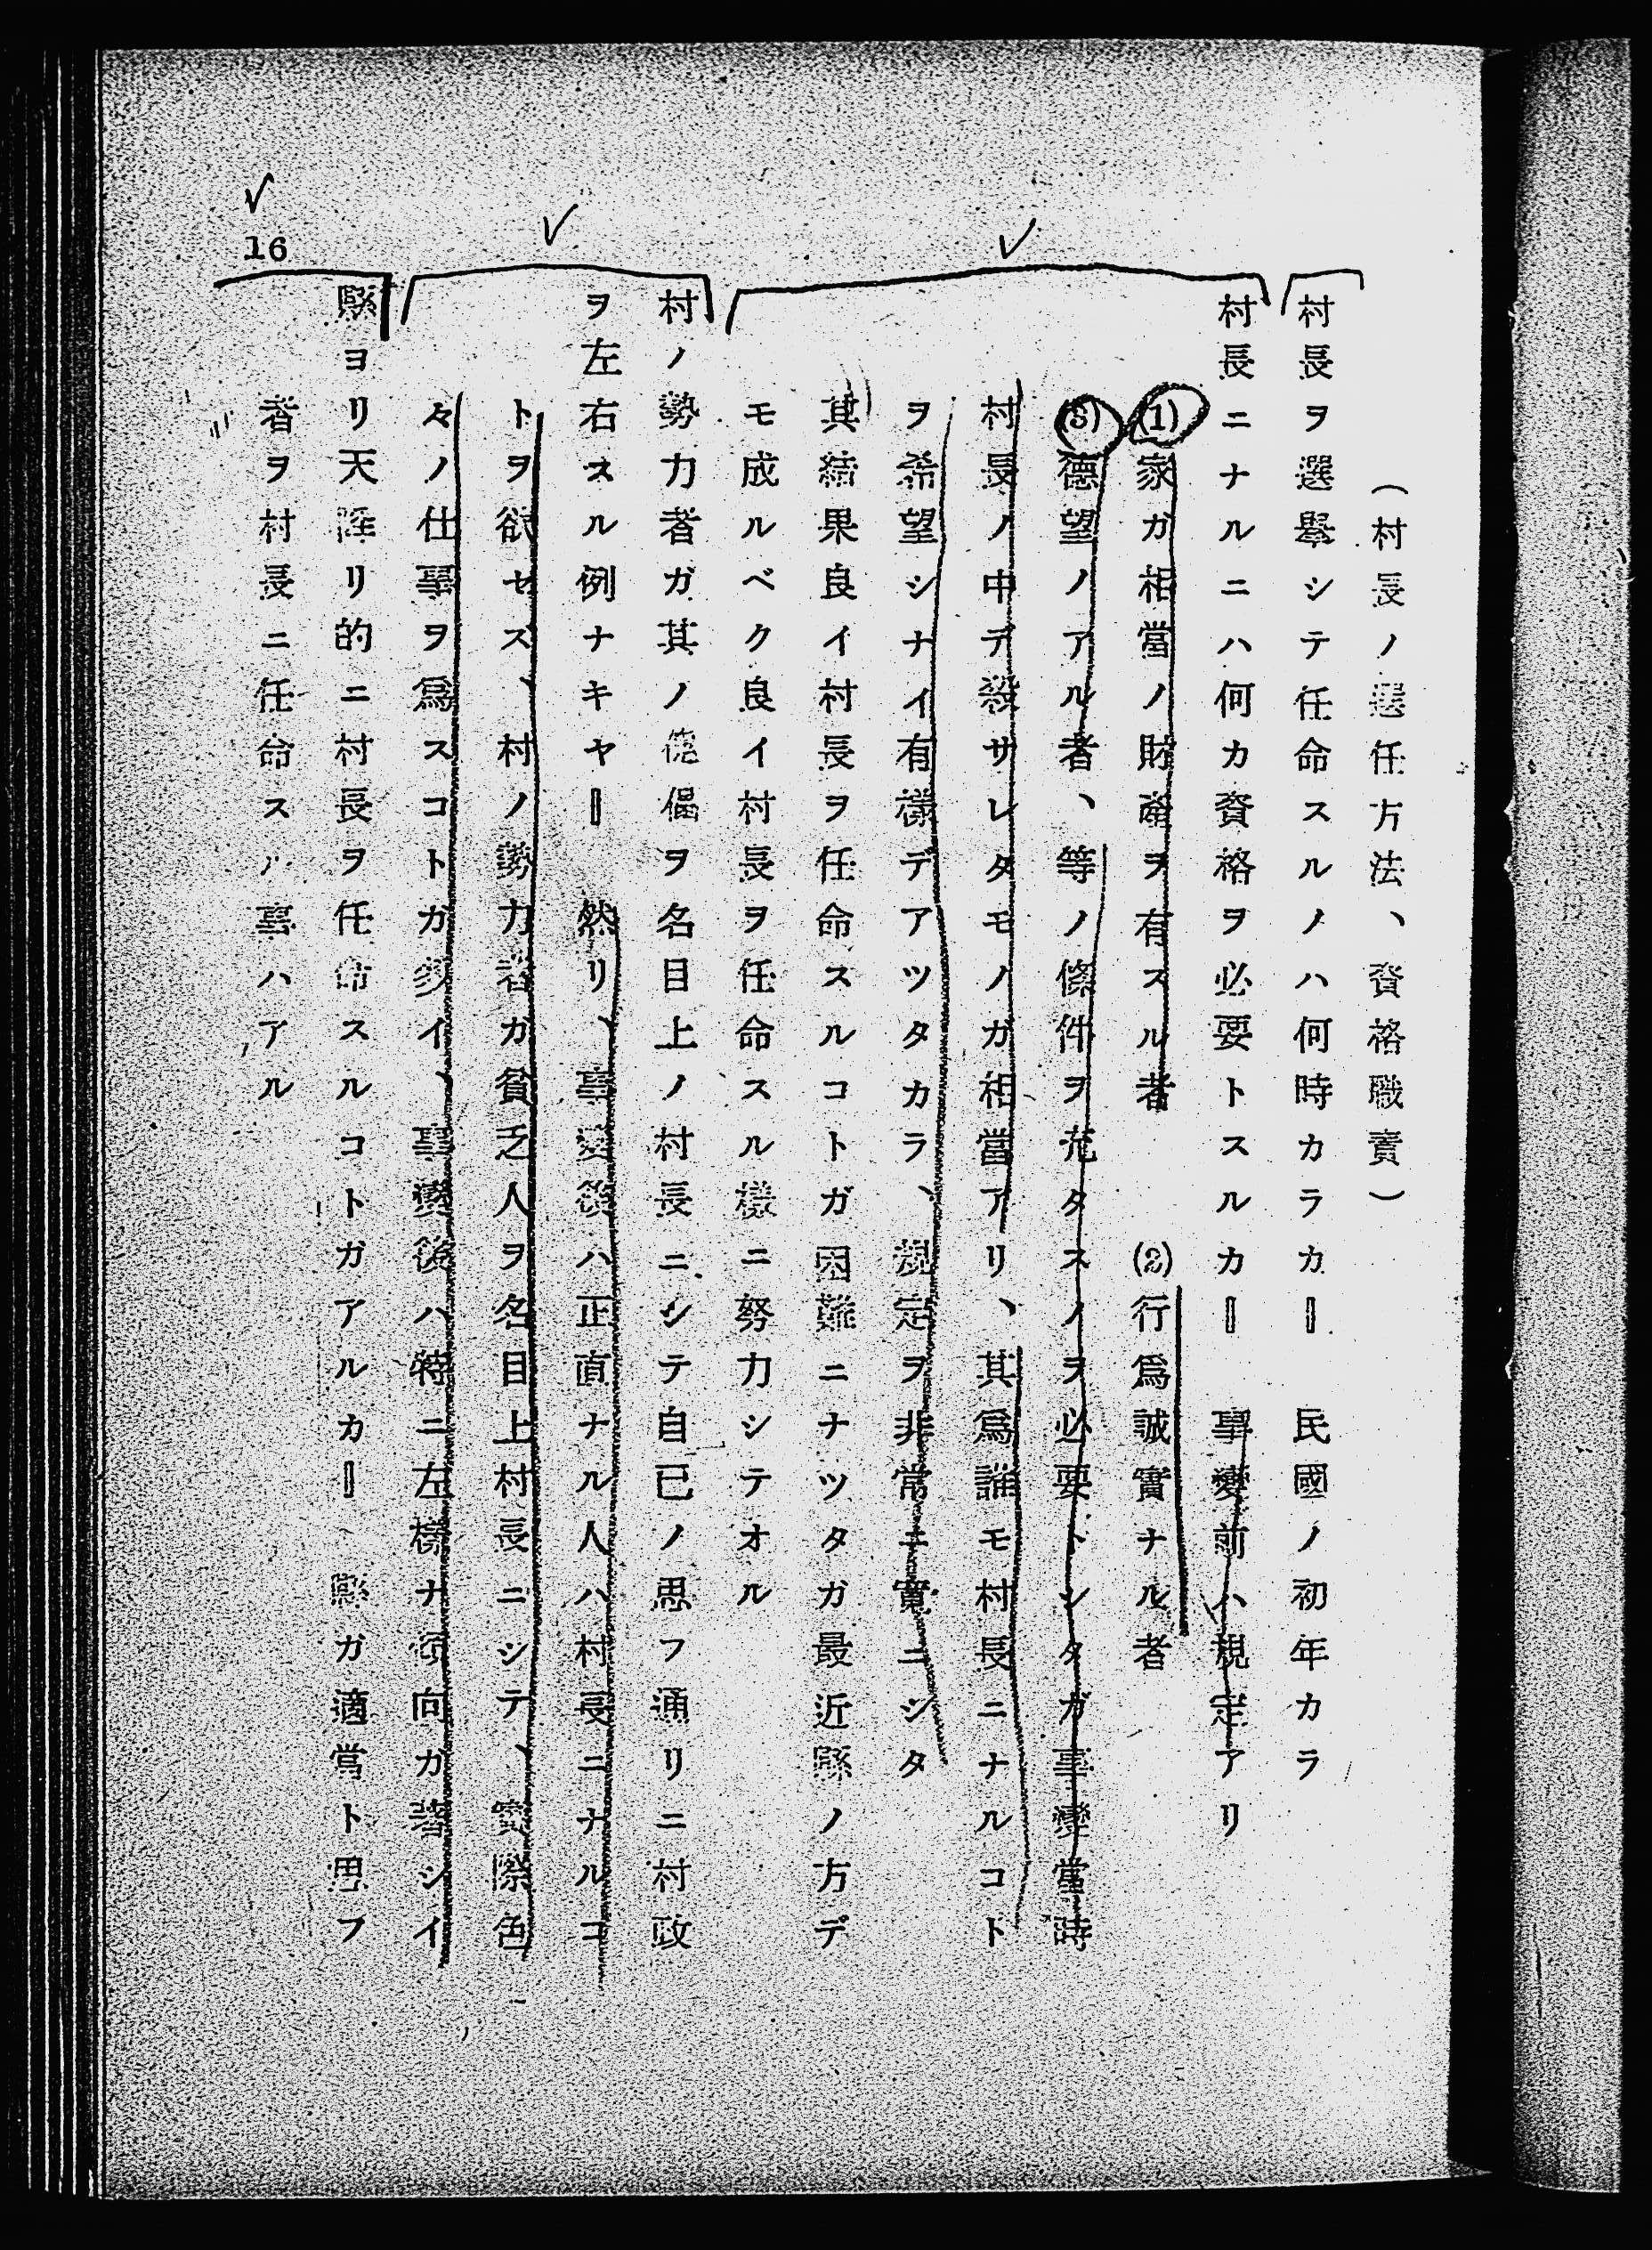 (村長ノ選任方法、資格職責)
村長ヲ選擧シテ任命スルノハ何時カラカ‖ 民國ノ初年カラ
村長ニナルニハ何カ資格ヲ必要トスルカ‖ 事變前ハ規定アリ
(1)家ガ相當ノ財產ヲ有スル者 (2)行爲誠實ナル者
(3)德望ノアル者、等ノ條件ヲ充タスノヲ必要トシタガ事變當時
村長ノ中デ殺サレタモノガ相當アリ、其爲誰モ村長ニナルコト
ヲ希望シナイ有樣デアツタカラ、規定ヲ非常ニ寬ニシタ
其結果良イ村長ヲ任命スルコトガ困難ニナツタガ最近縣ノ方デ
モ成ルベク良イ村長ヲ任命スル樣ニ努力シテオル
村ノ勢力者ガ其ノ傀儡ヲ名目上ノ村長ニシテ自己ノ思フ通リニ村政
ヲ左右スル例ナキヤ‖ 然リ、事變後ハ正直ナル人ハ村長ニナルコ
トヲ欲セズ、村ノ勢力者ガ貧乏人ヲ名目上村長ニシテ、實際色
々ノ仕事ヲ爲スコトガ多イ、事變後ハ特ニ左樣ナ傾向ガ著シイ
縣ヨリ天降リ的ニ村長ヲ任命スルコトガアルカ‖ 縣ガ適當ト思フ
者ヲ村長ニ任命スル事ハアル
16